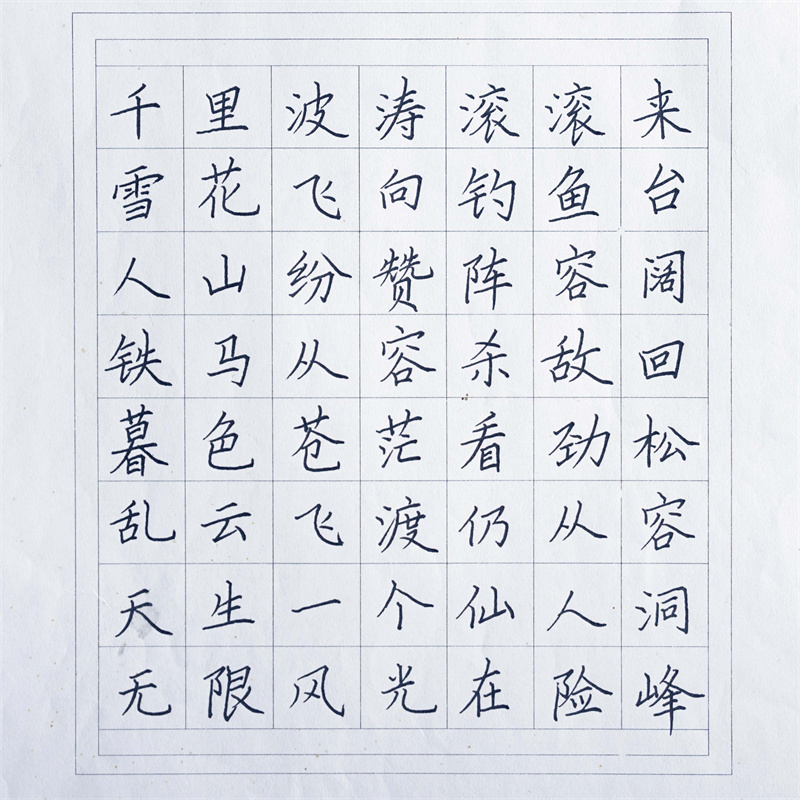 千里波涛滚滚来
雪花飞向钓鱼台
人山纷赞阵容阔
铁马从容杀敌回
暮色苍茫看劲松
乱云飞渡仍从容
天生一个仙人洞
无限风光在险峰